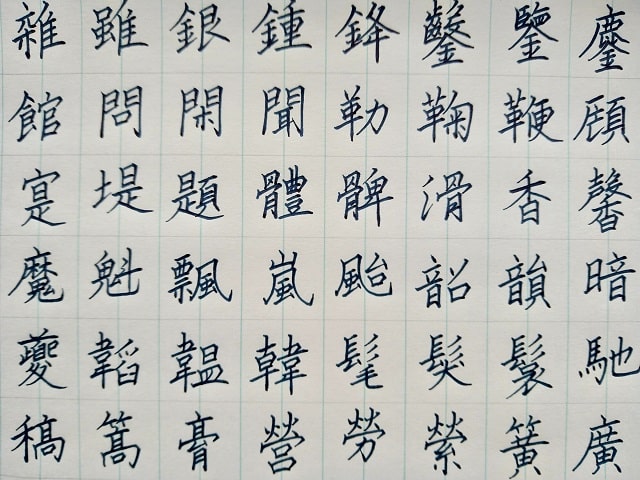 雜雖銀鍾鋒鑿鑒鏖
館問閑聞勒鞠鞭
寔堤題體髀滑香馨
魔魁飄嵐颱韶韻暗
夔韜韞韓髦髮鬟馳
稿篙膏營勞縈簧廣